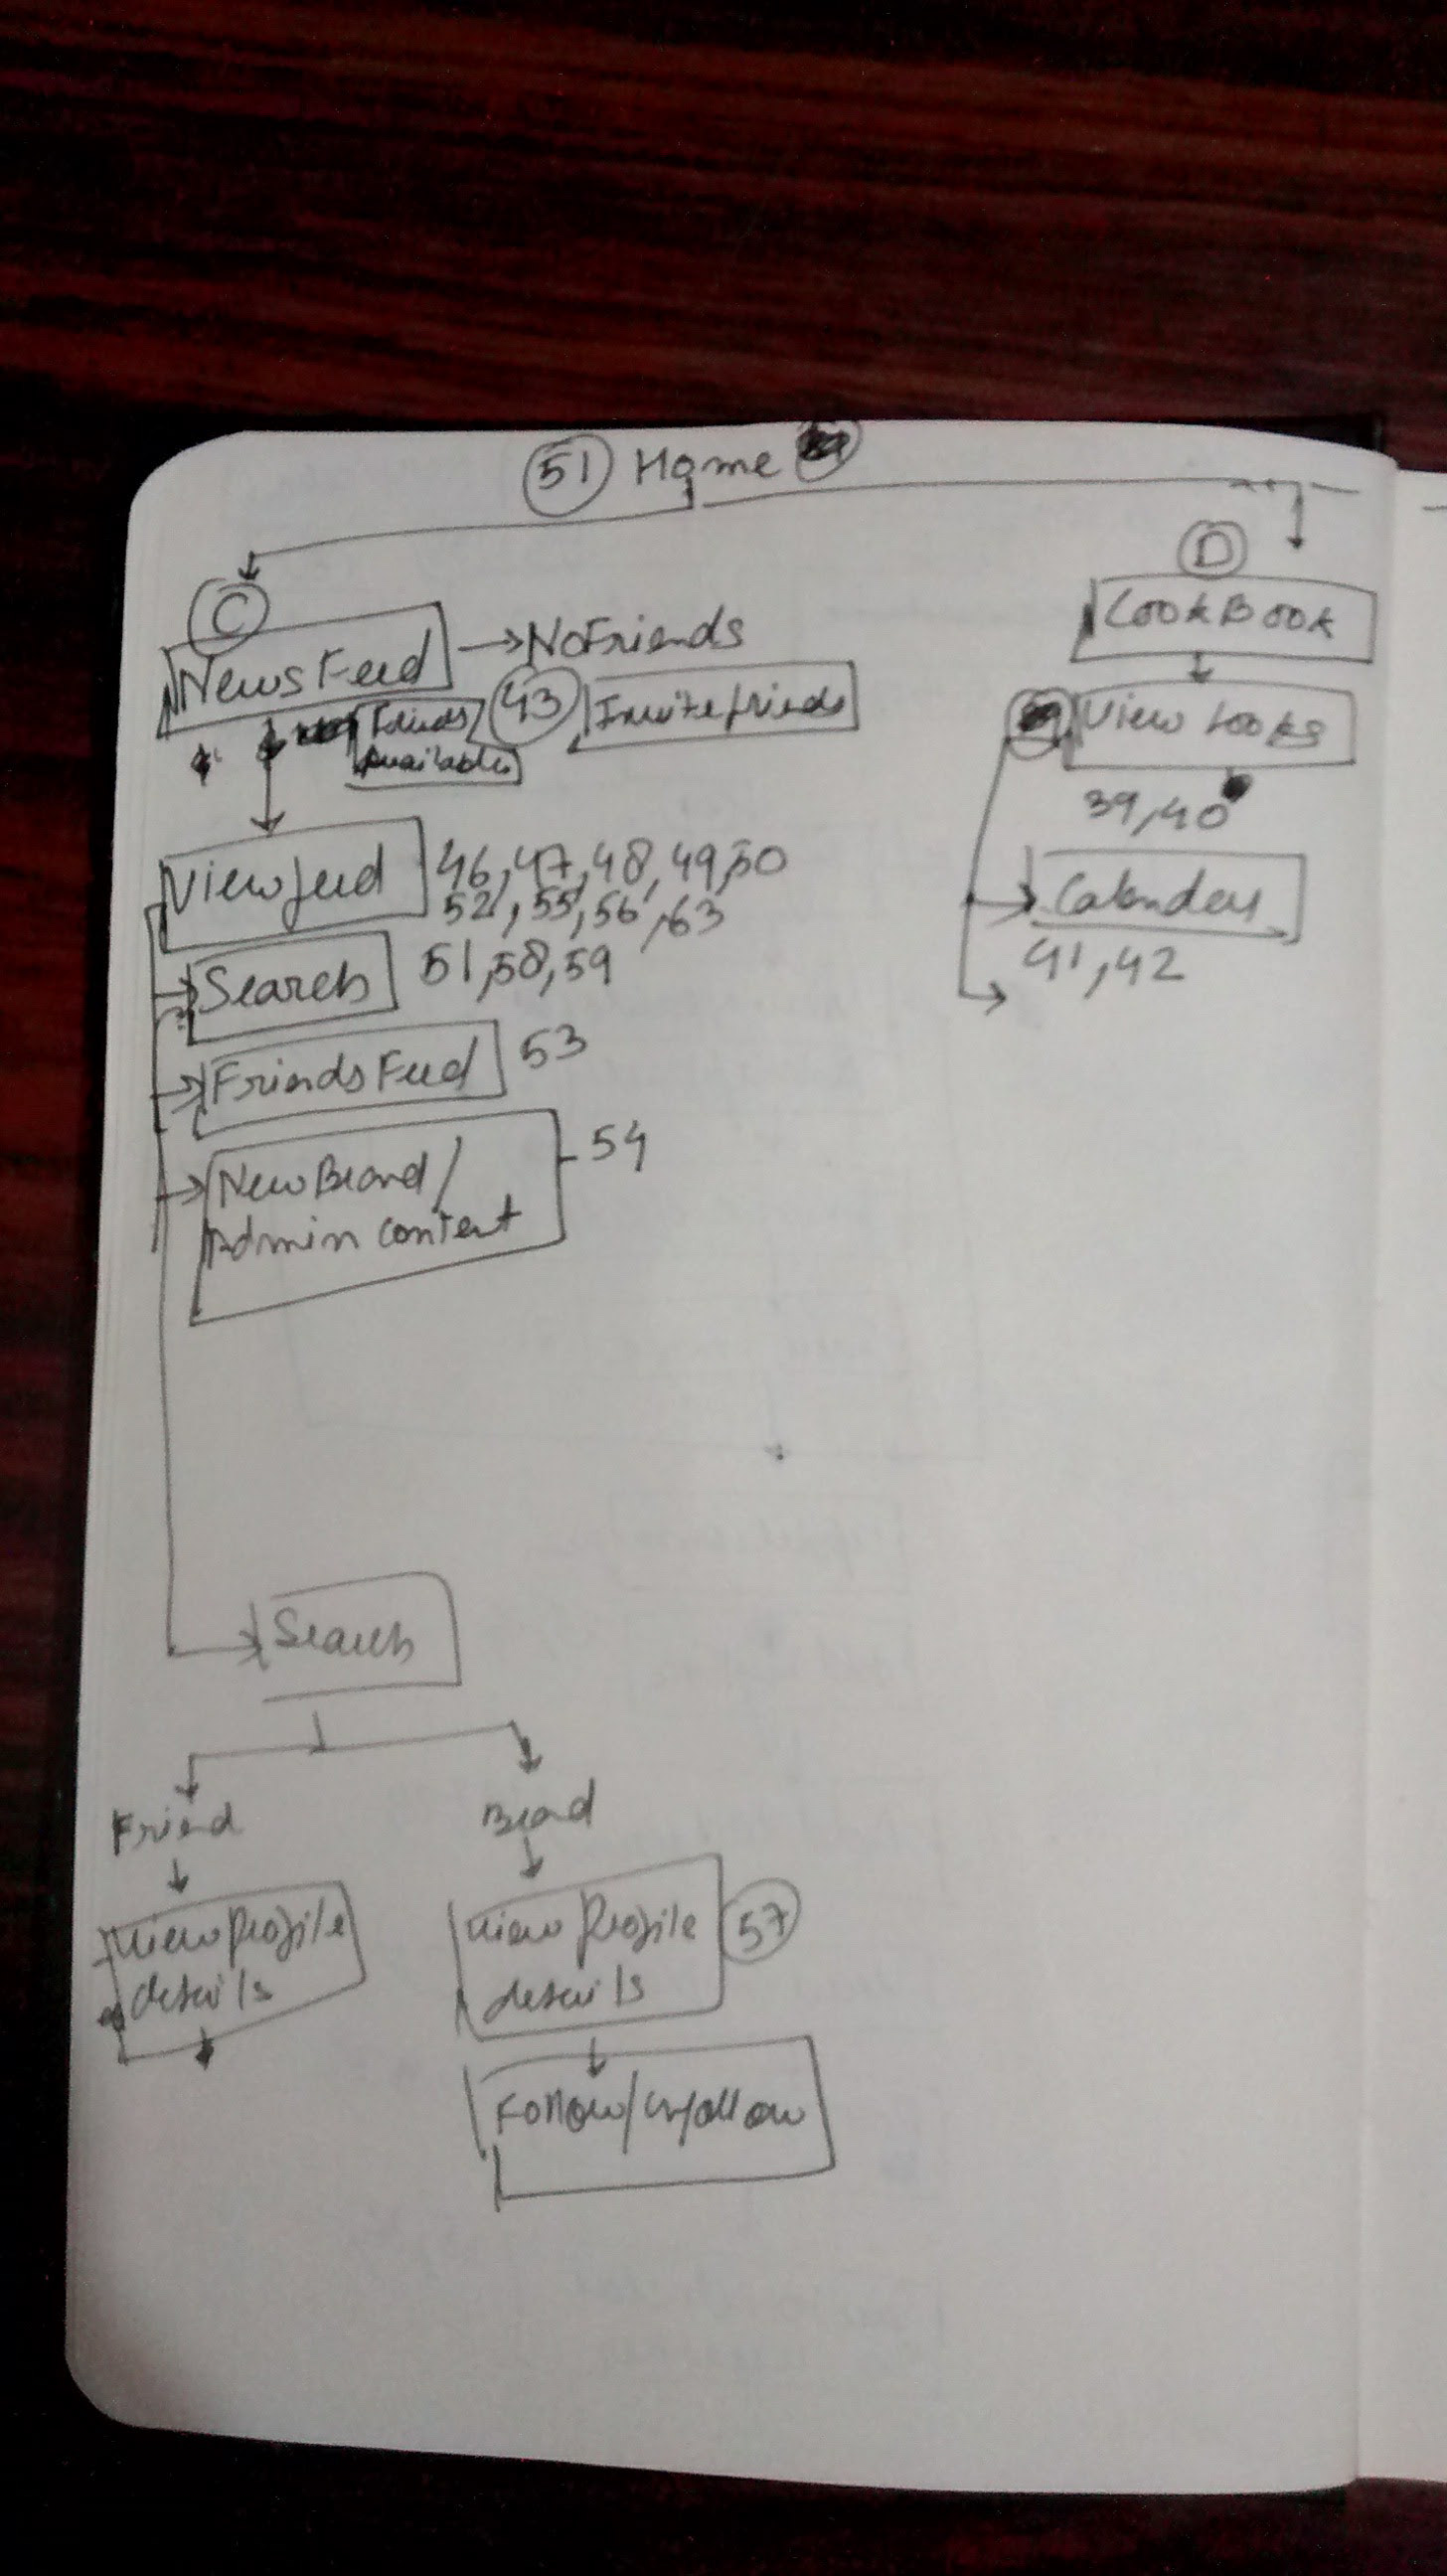 51 Home
C
D
News Feed
No Friends
Look Book
Friends
Available
43
Invite friends
View Looks
39,40
View feed
46,47,48,49,50
52,55,56,63
Calender
41,42
Search
51,58,59
Friends Feed
53
New Brand/
Admin content
54
Search
Friend
Brand
View Profile
details
View Profile
details
57
Follow/Unfollow